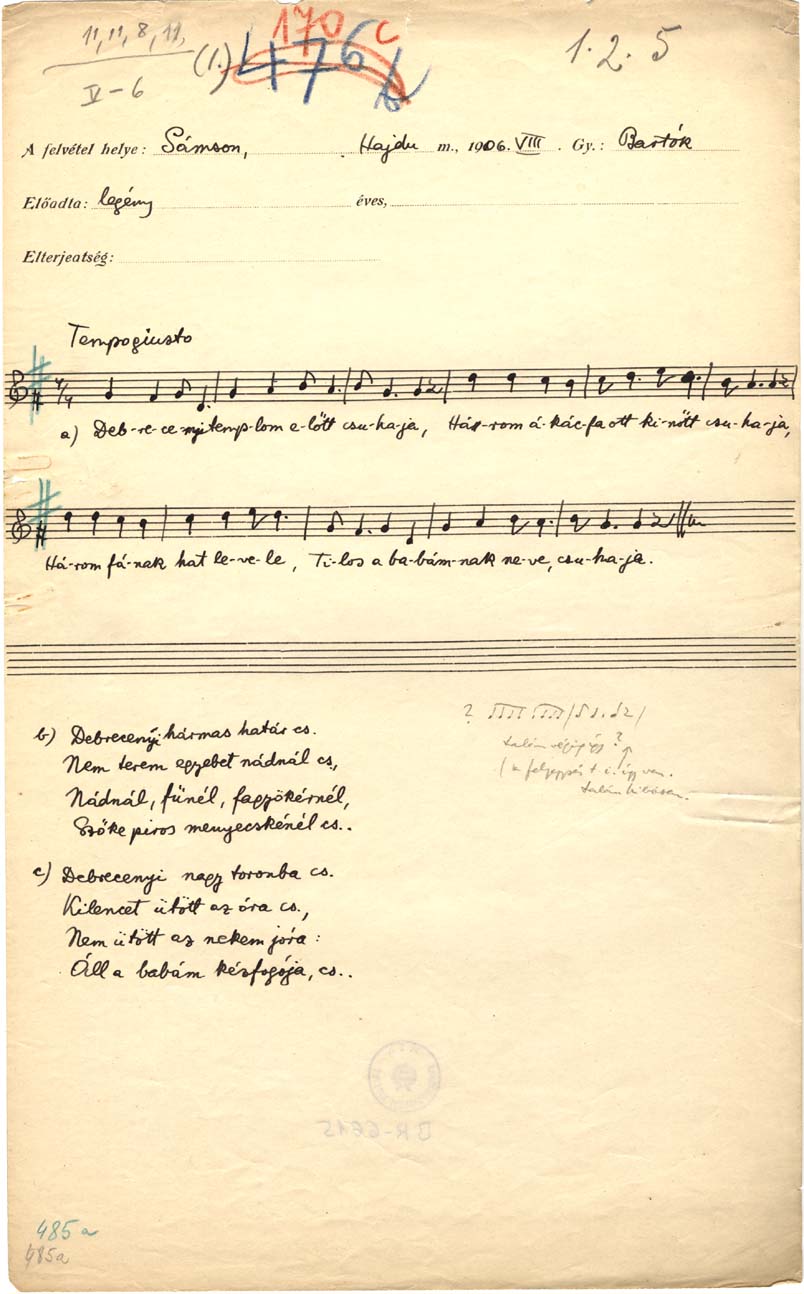 11, 11, 8, 11,
V-6
(1.)
170 c
476 b
1. 2. 5
A felvétel helye: Sámson, Hajdu m., 1906. VIII. Gy.: Bartók
Előadta: legény éves,
Elterjeatség:
Tempogiusto
a) Deb-re-ce-nyi temp-lom e-lőtt csu-ha-ja, Há-rom á-kác-fa ott ki-nőtt csu-ha-ja,
Há-rom fá-nak hat le-ve-le, Ti-los a ba-bám-nak ne-ve, csu-ha-ja.
b) Debrecenyi hármas határ cs.
Nem terem egyebet nádnál cs,
Nádnál, fünél, fagyökérnél,
Szőke piros menyecskénél cs..
c) Debrecenyi nagy toronba cs.
Kilencet ütött az óra cs.,
Nem ütött az nekem jóra:
Áll a babám kézfogója, cs..
?
talán végig így?
BR-6615
485a
485a